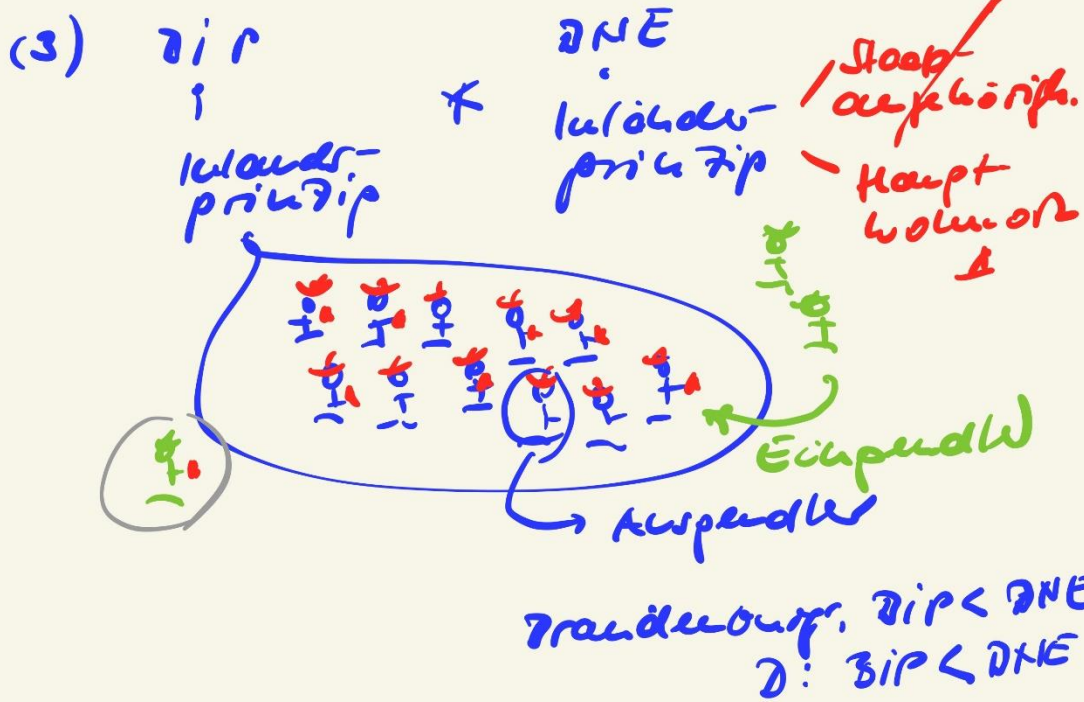 (3) BiP * BNE
Inlands- Inländer- Staats-
prinzip prinzip angehörigk.
Haupt
wohnort
Einpendler
Auspendler
Brandenburg: BiP < BNE
D: BiP < BNE